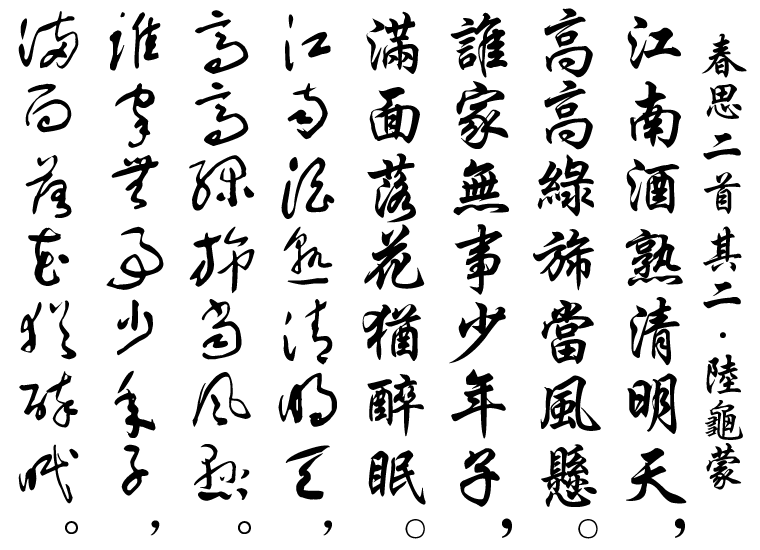 春思二首其二·陸龜蒙
江南酒熟清明天，
高高綠旆當風懸。
誰家無事少年子，
滿面落花猶醉眠。
江南酒熟清明天，
高高綠旆當風懸。
誰家無事少年子，
滿面落花猶醉眠。